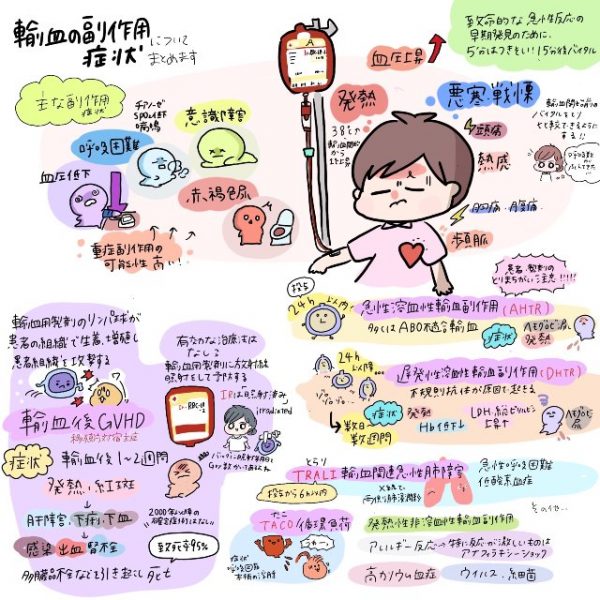 輸血の副作用
症状
について
まとめます
致命的な急性反応の
早期発見のために、
5分はつきそい！15分後バイタル
血圧上昇
主な副作用
症状
チアノーゼ
SpO2低下
喘鳴
意識障害
呼吸困難
血圧低下
赤、褐色尿
重症副作用の
可能性高い！
A
発熱
38℃↑
輸血開始
から
1℃上昇
悪寒戦慄
頭痛
熱感
胸痛・腹痛
頻脈
輸血開始前の
バイタルをとり
ちゃんと比較できるように
する！！
呼吸数
患者、製剤の
とりまちがい注意！！！！！
投与
24h以内
急性溶血性輸血副作用(AHTR)
多くはABO不適合輸血
症状
ヘモグロビン尿
発熱
24h
以降…
遅発性溶血性輸血副作用(DHTR)
不規則抗体が原因で起きる
症状
発熱
Hb低下↓
LDH、総ビリルビン
上昇↑
ヘモグロビン
尿
数日
数週間
輸血用製剤のリンパ球が
患者の組織で生着、増殖し
患者組織を攻撃する
有効な治療法は
なし：
輸血用製剤に放射線
照射をして予防する
IRは照射済み
irradiated
Ir-RBC
輸血後GVHD
移植片対宿主病
症状
輸血後1〜2週間
発熱・紅斑
肝障害、下痢、下血
感染、出血、腎不全
多臓器不全などを引き起こし死亡
2000年以降の
確定症例はない
致死率95%
とらり
TRALI 輸血関連急性肺障害
投与から6h以内
X線で
両側肺浸潤影
急性呼吸困難
低酸素血症
たこ
TACO/循環負荷
症状
呼吸困難
その他…
発熱性非溶血性輸血副作用
アレルギー反応→特に反応が激しいものは
アナフィラキシーショック
高カリウム血症
ウイルス・細菌